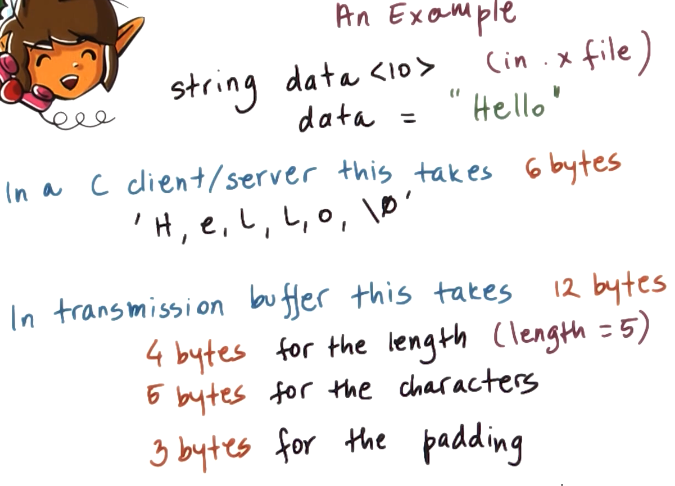 An Example
string data <10> (in .x file)
data = "Hello"
In a C client/server this takes 6 bytes
'H, e, L, L, o, \0'
In transmission buffer this takes 12 bytes
4 bytes for the length (length = 5)
5 bytes for the characters
3 bytes for the padding